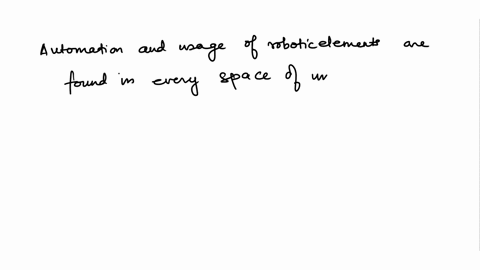 Automation and usage of robotic elements are
found in every space of